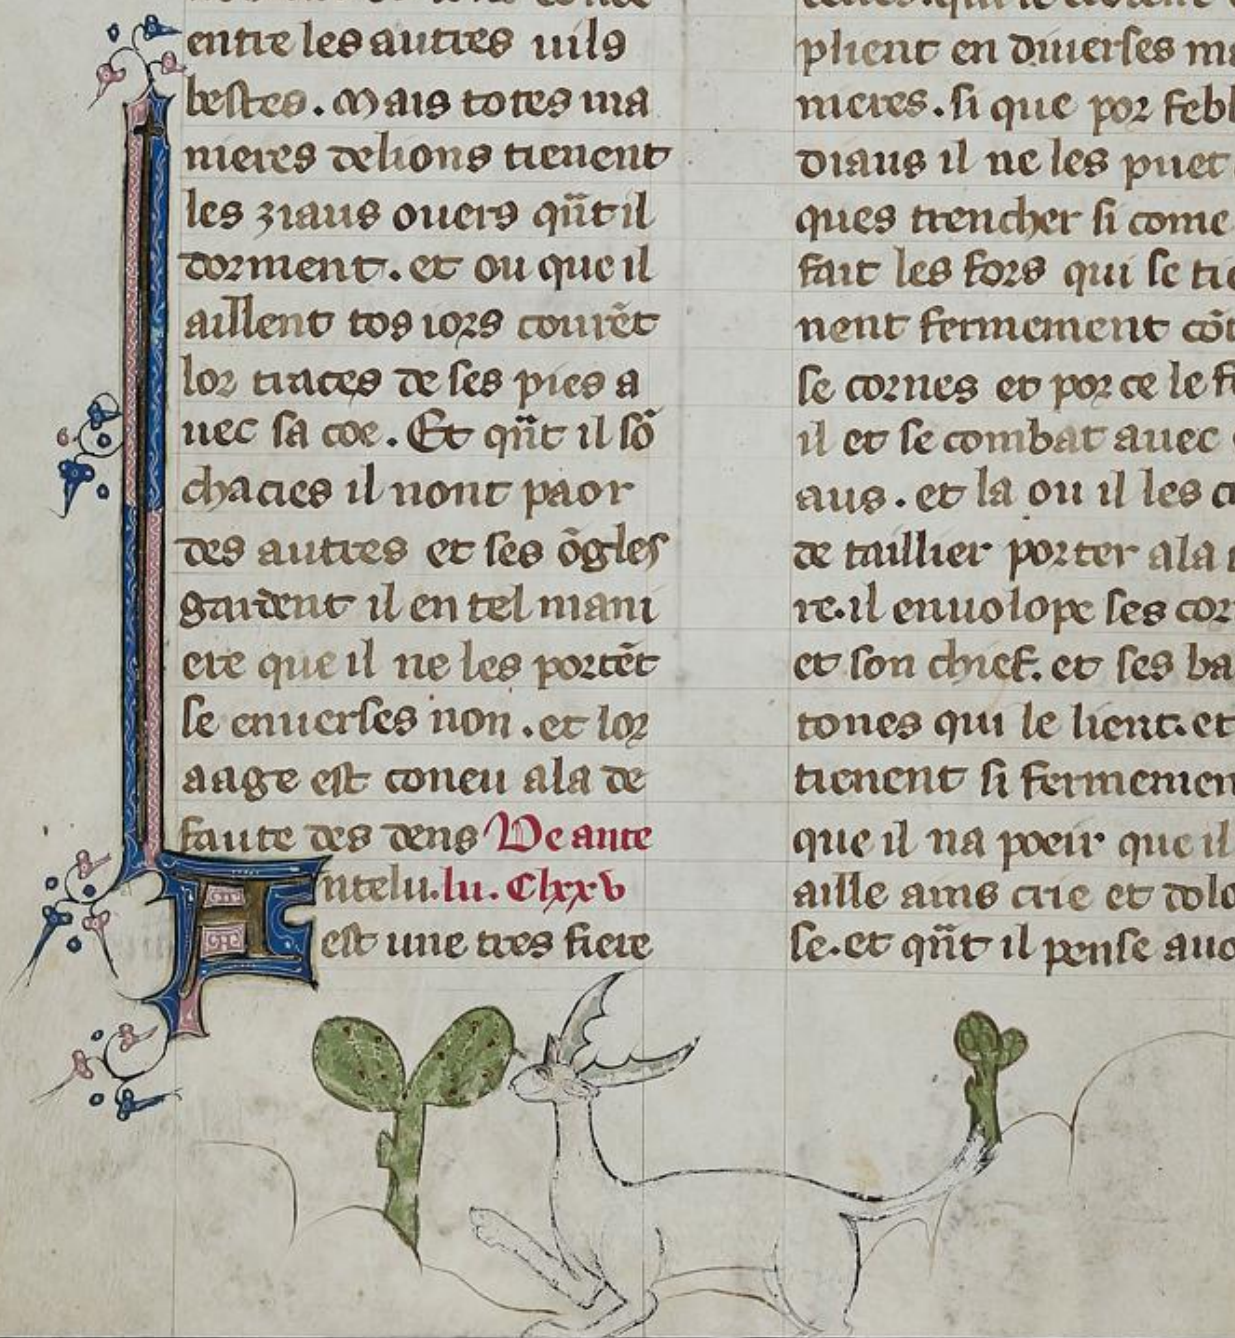 entre les autres uils
bestes. Mais totes ma
nieres delions tienent
les ziaus ouers qñt il
dorment. et ou que il
aillent tos iors courēt
lor traces de ses pies a
uec sa coe. Et qñt il sō
chacies il nont paor
des autres et ses ōgles
gardent il en tel mani
ere que il ne les portēt
se enuerses non. et lor
aage est coneu ala de
faute des dens De ante
Antelu.lu. Clxxv
est une tres fiere
plient en diuerses ma
nieres. si que por febl
diaus il ne les puet
ques trencher si come
fait les fors qui se tie
nent fermement
se cornes et por ce le
il et se combat auec
aus. et la ou il les
de taillier porter ala
re. il enuolope ses cor
et son chief. et ses ba
tones qui le lient. et
tienent si fermemen
que il na poeir que il
aille ains crie et dolo
se. et qñt il pense auo